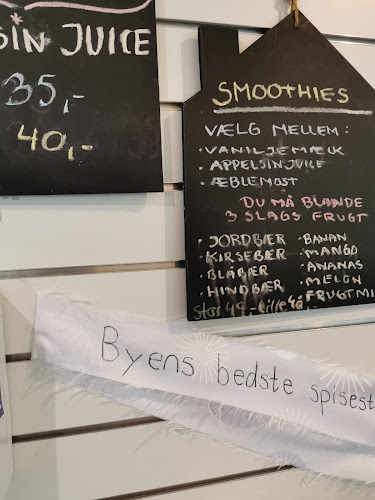 SIN JUICE
35,-
40,-
SMOOTHIES
VÆLG MELLEM:
· VANILJEMÆLK
· APPELSINJUICE
· ÆBLEMOST
DU MÅ BLANDE
3 SLAGS FRUGT
· JORDBÆR
· KIRSEBÆR
· BLÅBÆR
· HINDBÆR
· BANAN
· MANGO
· ANANAS
· MELON
· FRUGTMI
Stor 49
Byens bedste spisest